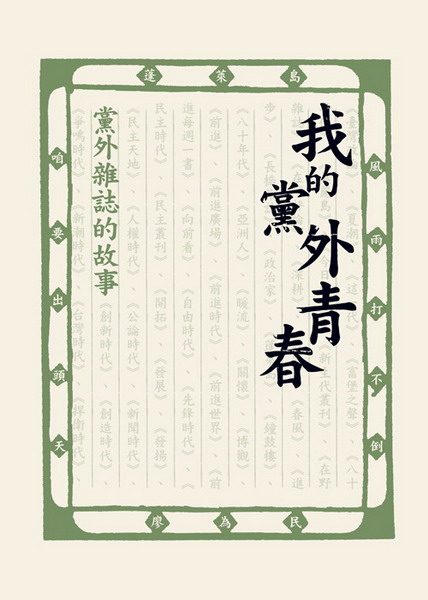 蓬萊島
風雨打不倒
我的黨外青春
《夏潮》、《這一代》、《富堡之聲》、《八十
《新生代叢刊》、《在野
深耕》、《春風》、《進
步》、《政治家》、《鐘鼓樓》、
《八十年代》、《亞洲人》、《暖流》、《關懷》、《博觀》、
《前進》、《前進廣場》、《前進時代》、《前進世界》、《前
進每週一書》、《向前看》、《自由時代》、《先鋒時代》、
《民主時代》、《民主叢刊》、《開拓》、《發展》、《發揚》、
《民主天地》、《人權時代》、《公論時代》、《新聞時代》、
黨外雜誌的故事
《創新時代》、《創造時代》、
《爭鳴時代》、《新潮時代》、《台灣時代》、《捍衛時代》、
咱要出頭天
廖為民